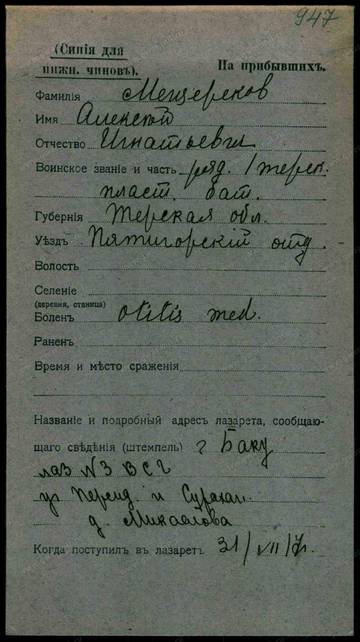 947
(Синія для
нижн. чиновъ).
На прибывшихъ.
Фамилія Мещеряков
Имя Алексѣй
Отчество Игнатьевич
Воинское званіе и часть ряд. 1 терск.
пласт. бат.
Губернія Терская обл.
Уѣздъ Пятигорскій отд.
Волость
Селеніе
(деревня, станица)
Боленъ otitis med.
Раненъ
Время и мѣсто сраженія
Названіе и подробный адресъ лазарета, сообщаю-
щаго свѣдѣнія (штемпель) г Баку
лаз N3 ВСГ
уг Персид. и Сурахан.
д. Микаэлова
Когда поступилъ въ лазаретъ 31/VII/17г.